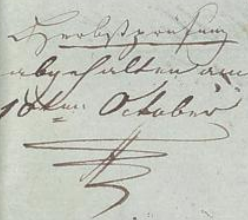 Herbstprüfung
abgehalten am
18ten October